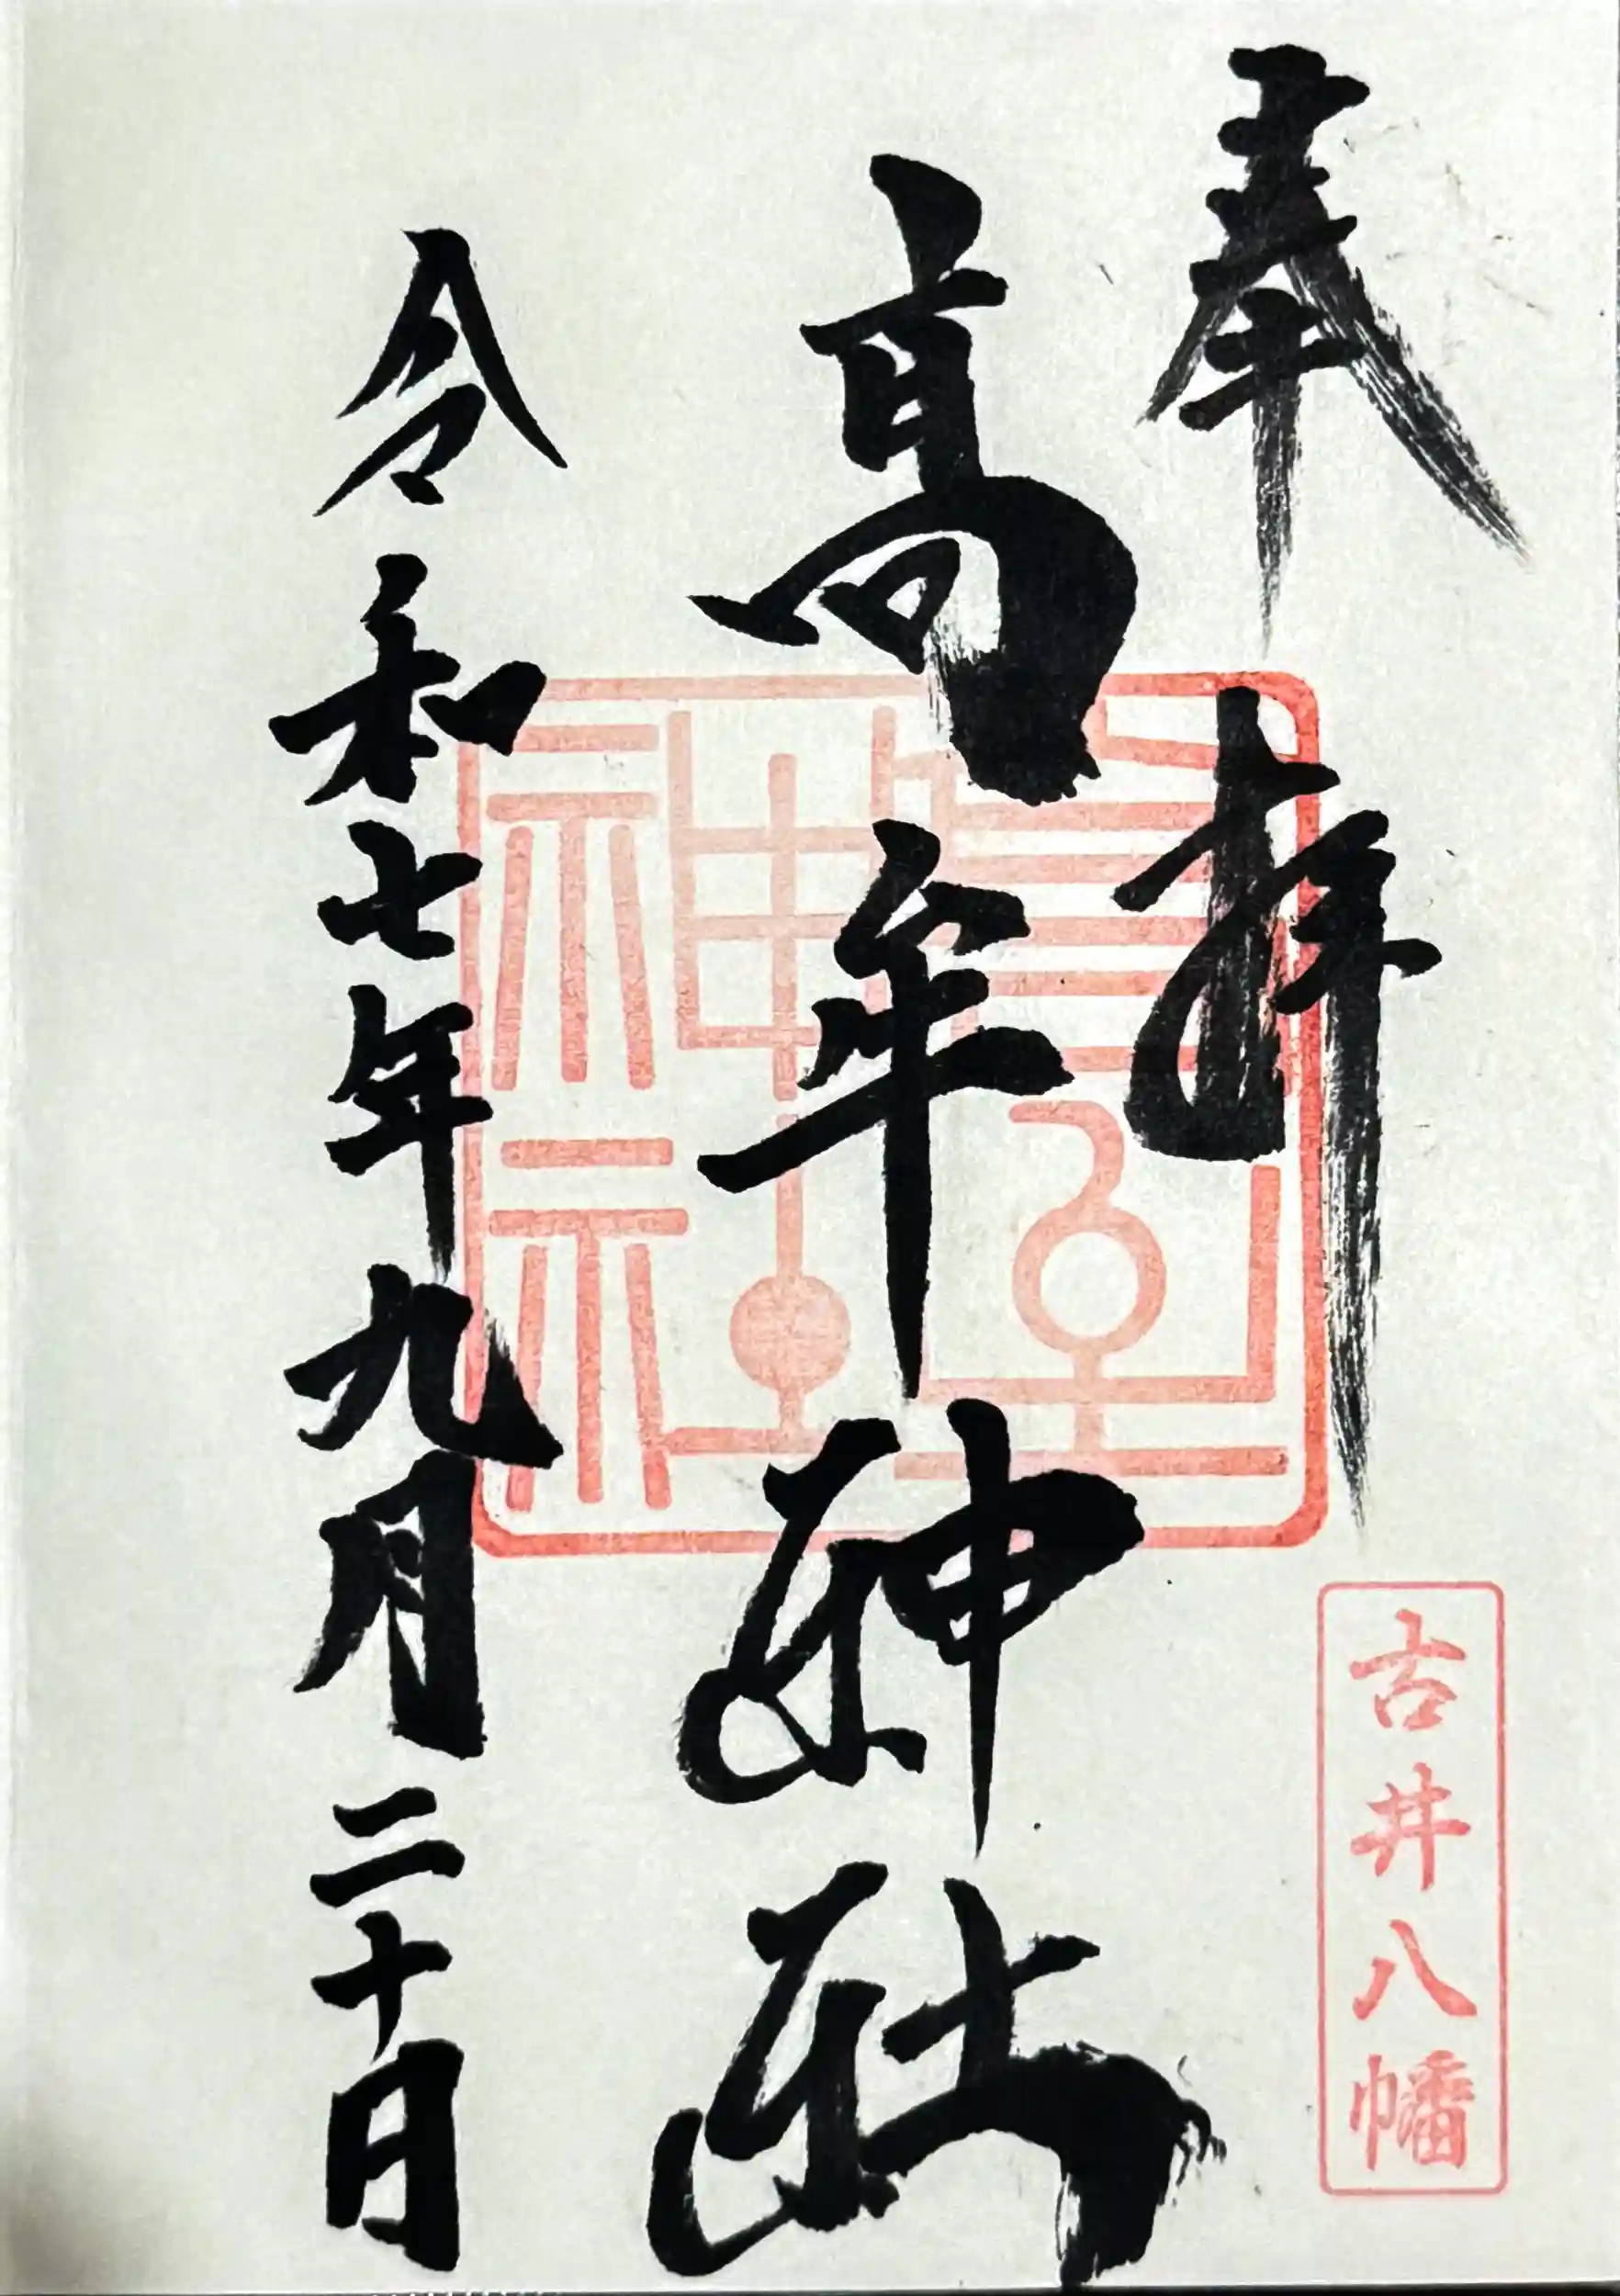 奉拝
古井八幡
高牟神社
令和七年九月二十日